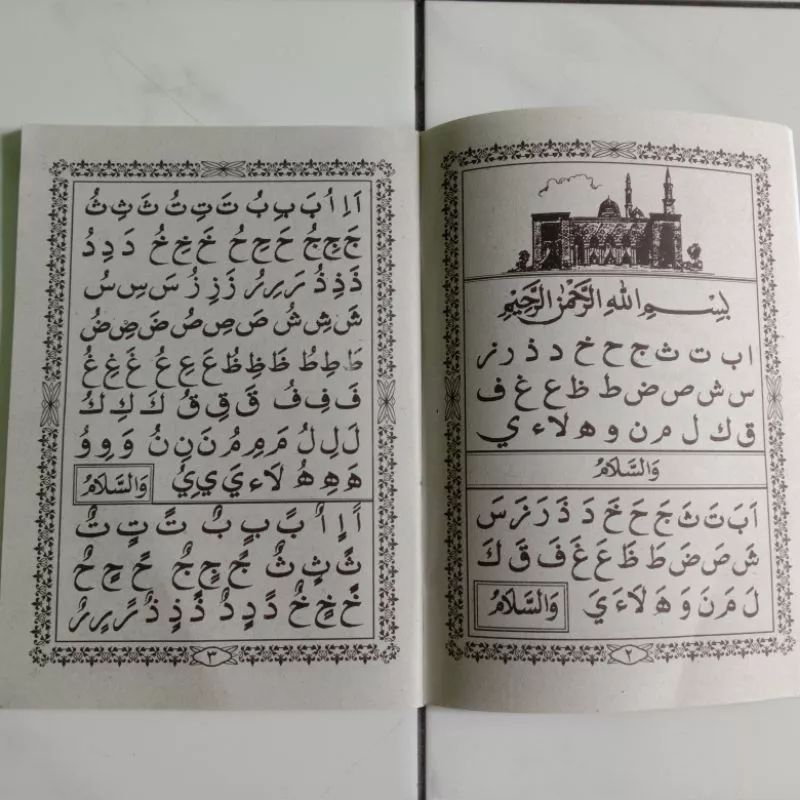 بِسْمِ اللهِ الرَّحْمٰنِ الرَّحِيْمِ
ا ب ت ث ج ح خ د ذ ر ز
س ش ص ض ط ظ ع غ ف
ق ك ل م ن و ه لا ء ي
وَالسَّلَامُ
اَ بَ تَ ثَ جَ حَ خَ دَ ذَ رَ زَ سَ
شَ صَ ضَ طَ ظَ عَ غَ فَ قَ كَ
لَ مَ نَ وَ هَ لَا ءَ يَ وَالسَّلَامُ
٢
اَ اِ اُ بَ بِ بُ تَ تِ تُ ثَ ثِ ثُ
جَ جِ جُ حَ حِ حُ خَ خِ خُ دَ دِ دُ
ذَ ذِ ذُ رَ رِ رُ زَ زِ زُ سَ سِ سُ
شَ شِ شُ صَ صِ صُ ضَ ضِ ضُ
طَ طِ طُ ظَ ظِ ظُ عَ عِ عُ غَ غِ غُ
فَ فِ فُ قَ قِ قُ كَ كِ كُ
لَ لِ لُ مَ مِ مُ نَ نِ نُ وَ وِ وُ
هَ هِ هُ لَا ءَ يَ يِ يُ وَالسَّلَامُ
اً اٍ اٌ بً بٍ بٌ تً تٍ تٌ
ثً ثٍ ثٌ جً جٍ جٌ حً حٍ حٌ
خً خٍ خٌ دً دٍ دٌ ذً ذٍ ذٌ رً رٍ رٌ
٣